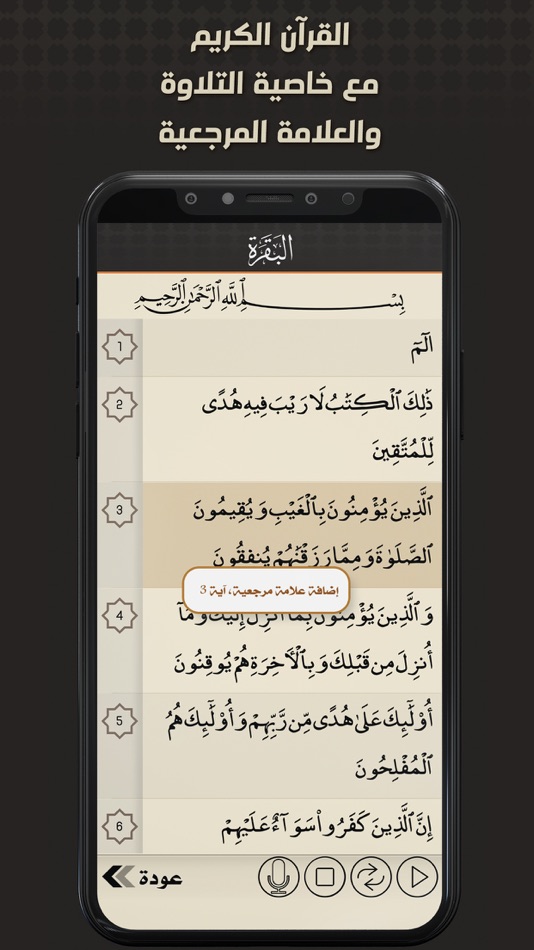 القرآن الكريم
مع خاصية التلاوة
والعلامة المرجعية
البَقَرَة
بِسْمِ ٱللَّهِ ٱلرَّحْمَٰنِ ٱلرَّحِيمِ
الٓمٓ
1
ذَٰلِكَ ٱلْكِتَٰبُ لَا رَيْبَ فِيهِ هُدًى
2
لِّلْمُتَّقِينَ
ٱلَّذِينَ يُؤْمِنُونَ بِٱلْغَيْبِ وَيُقِيمُونَ
3
ٱلصَّلَوٰةَ وَمِمَّا رَزَقْنَٰهُمْ يُنفِقُونَ
إضافة علامة مرجعية، آية 3
وَٱلَّذِينَ يُؤْمِنُونَ بِمَآ أُنزِلَ إِلَيْكَ وَمَآ
4
أُنزِلَ مِن قَبْلِكَ وَبِٱلْأَخِرَةِ هُمْ يُوقِنُونَ
أُو۟لَٰٓئِكَ عَلَىٰ هُدًى مِّن رَّبِّهِمْ وَأُو۟لَٰٓئِكَ هُمُ
5
ٱلْمُفْلِحُونَ
إِنَّ ٱلَّذِينَ كَفَرُوا۟ سَوَآءٌ عَلَيْهِمْ
6
عودة